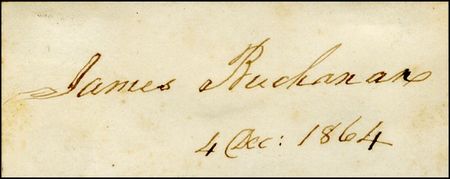 James Buchanan
4 Dec: 1864